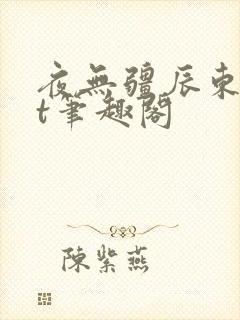 夜無疆辰東
t筆趣閣
陳紫燕